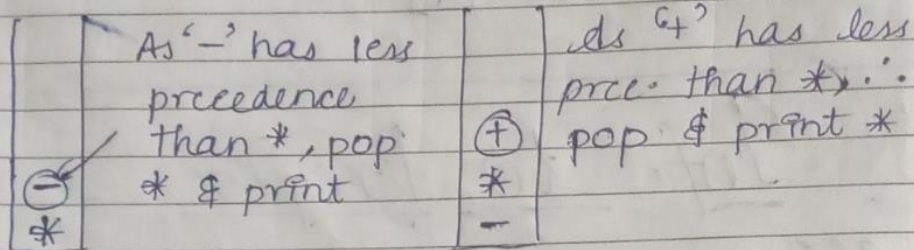 As '-' has less
precedence
than *, pop
* & print
-
*
As '+' has less
prce. than *, ∴
pop & print *
+
*
-